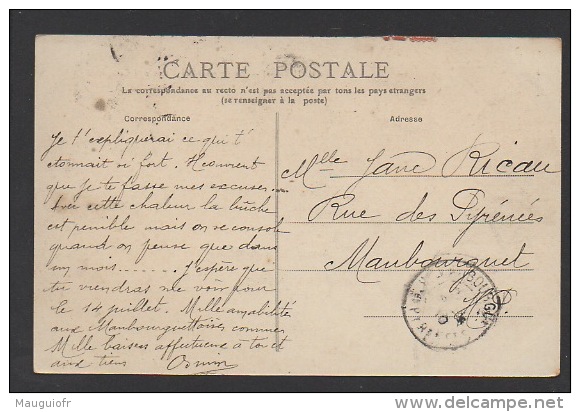 CARTE POSTALE
La correspondance au recto n'est pas acceptée par tous les pays etrangers
(se renseigner à la poste)
Correspondance
Adresse
Je t'expliquerai ce qui t'
etonnait si fort. Il convient
que je te fasse mes excuses....
Avec cette chaleur la bûche
est penible mais on se console
quand on pense que dans
un mois...... J'espère que
tu viendras me voir pour
le 14 juillet. Mille amabilité
aux Maubourguettoises, comme
Mille baisers affectueux à toi et
aux tiens
Mlle Jane Ricau
Rue des Pyrénées
Maubourguet
H. P.
Mauguiofr
www.delcampe.net